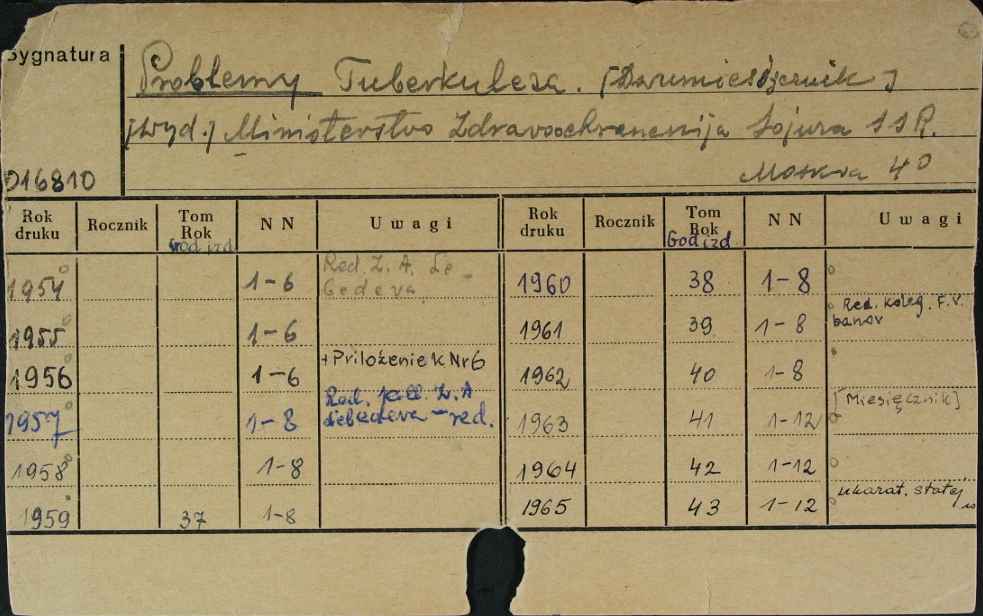 Sygnatura
Problemy Tuberkuleza. [Dwumiesięcznik]
[Wyd.] Ministerstvo Zdravoochranenija Sojuza SSR.
016810
Moskva 4°
Rok druku Rocznik Tom Rok God izd NN Uwagi Rok druku Rocznik Tom Rok God izd NN Uwagi
1954 1-6 Red. Z. A. Le- 1960 38 1-8
bedeva.
1955 1-6 1961 39 1-8 Red. koleg. F.V.
banov
1956 1-6 +Priloženie k Nr 6 1962 40 1-8
1957 1-8 Red. koll. Z. A 1963 41 1-12 [Miesięcznik]
Lebedeva - red.
1958 1-8 1964 42 1-12
1959 37 1-8 1965 43 1-12 statej